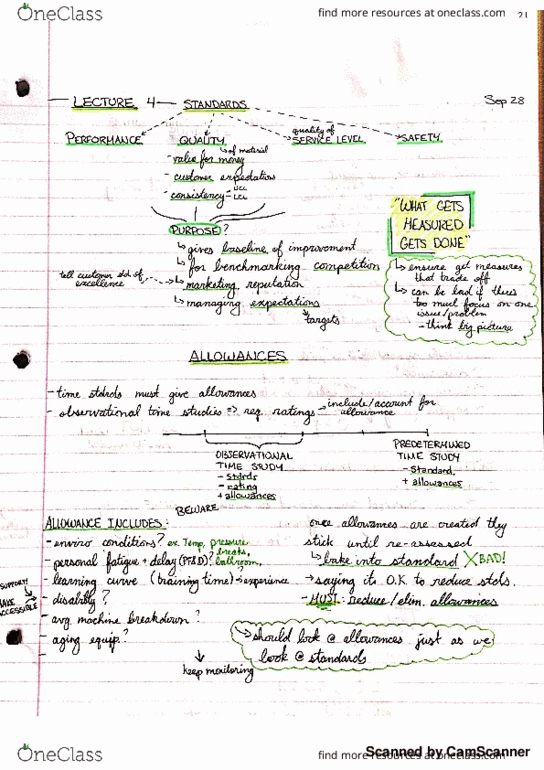 OneClass
find more resources at oneclass.com
21
LECTURE 4 — STANDARDS
Sep 28
PERFORMANCE
QUALITY
quality of
SERVICE LEVEL
SAFETY
of material
- value for money
- customer expectations
- consistency - UCL
LCL
PURPOSE?
"WHAT GETS
MEASURED
GETS DONE"
↳ gives baseline of improvement
↳ for benchmarking competition
tell customer std. of
excellence
↳ marketing reputation
↳ managing expectations
targets
↳ ensure get measures
that trade off
↳ can be bad if theres
too much focus on one
issue/problem
- think big picture
ALLOWANCES
- time stdrds must give allowances
- observational time studies => req. ratings → include/account for
allowance
OBSERVATIONAL
TIME STUDY
- stdrds
- rating
+ allowances
PREDETERMINED
TIME STUDY
- Standard
+ allowances
BEWARE
ALLOWANCE INCLUDES:
- enviro conditions? ex. Temp, pressure
- personal fatigue + delay (PF&D)? breaks, bathroom,
- learning curve (training time) → experience
- disability?
SUPPORT!
MAKE
ACCESSIBLE
- avg machine breakdown?
- aging equip?
↓
keep monitoring
once allowances are created they
stick until re-assessed
↳ bake into standard X BAD!
→ saying its O.K to reduce stds.
- MUST: reduce/elim. allowances
↳ should look @ allowances just as we
look @ standards
OneClass
find more resources at oneclass.com
Scanned by CamScanner